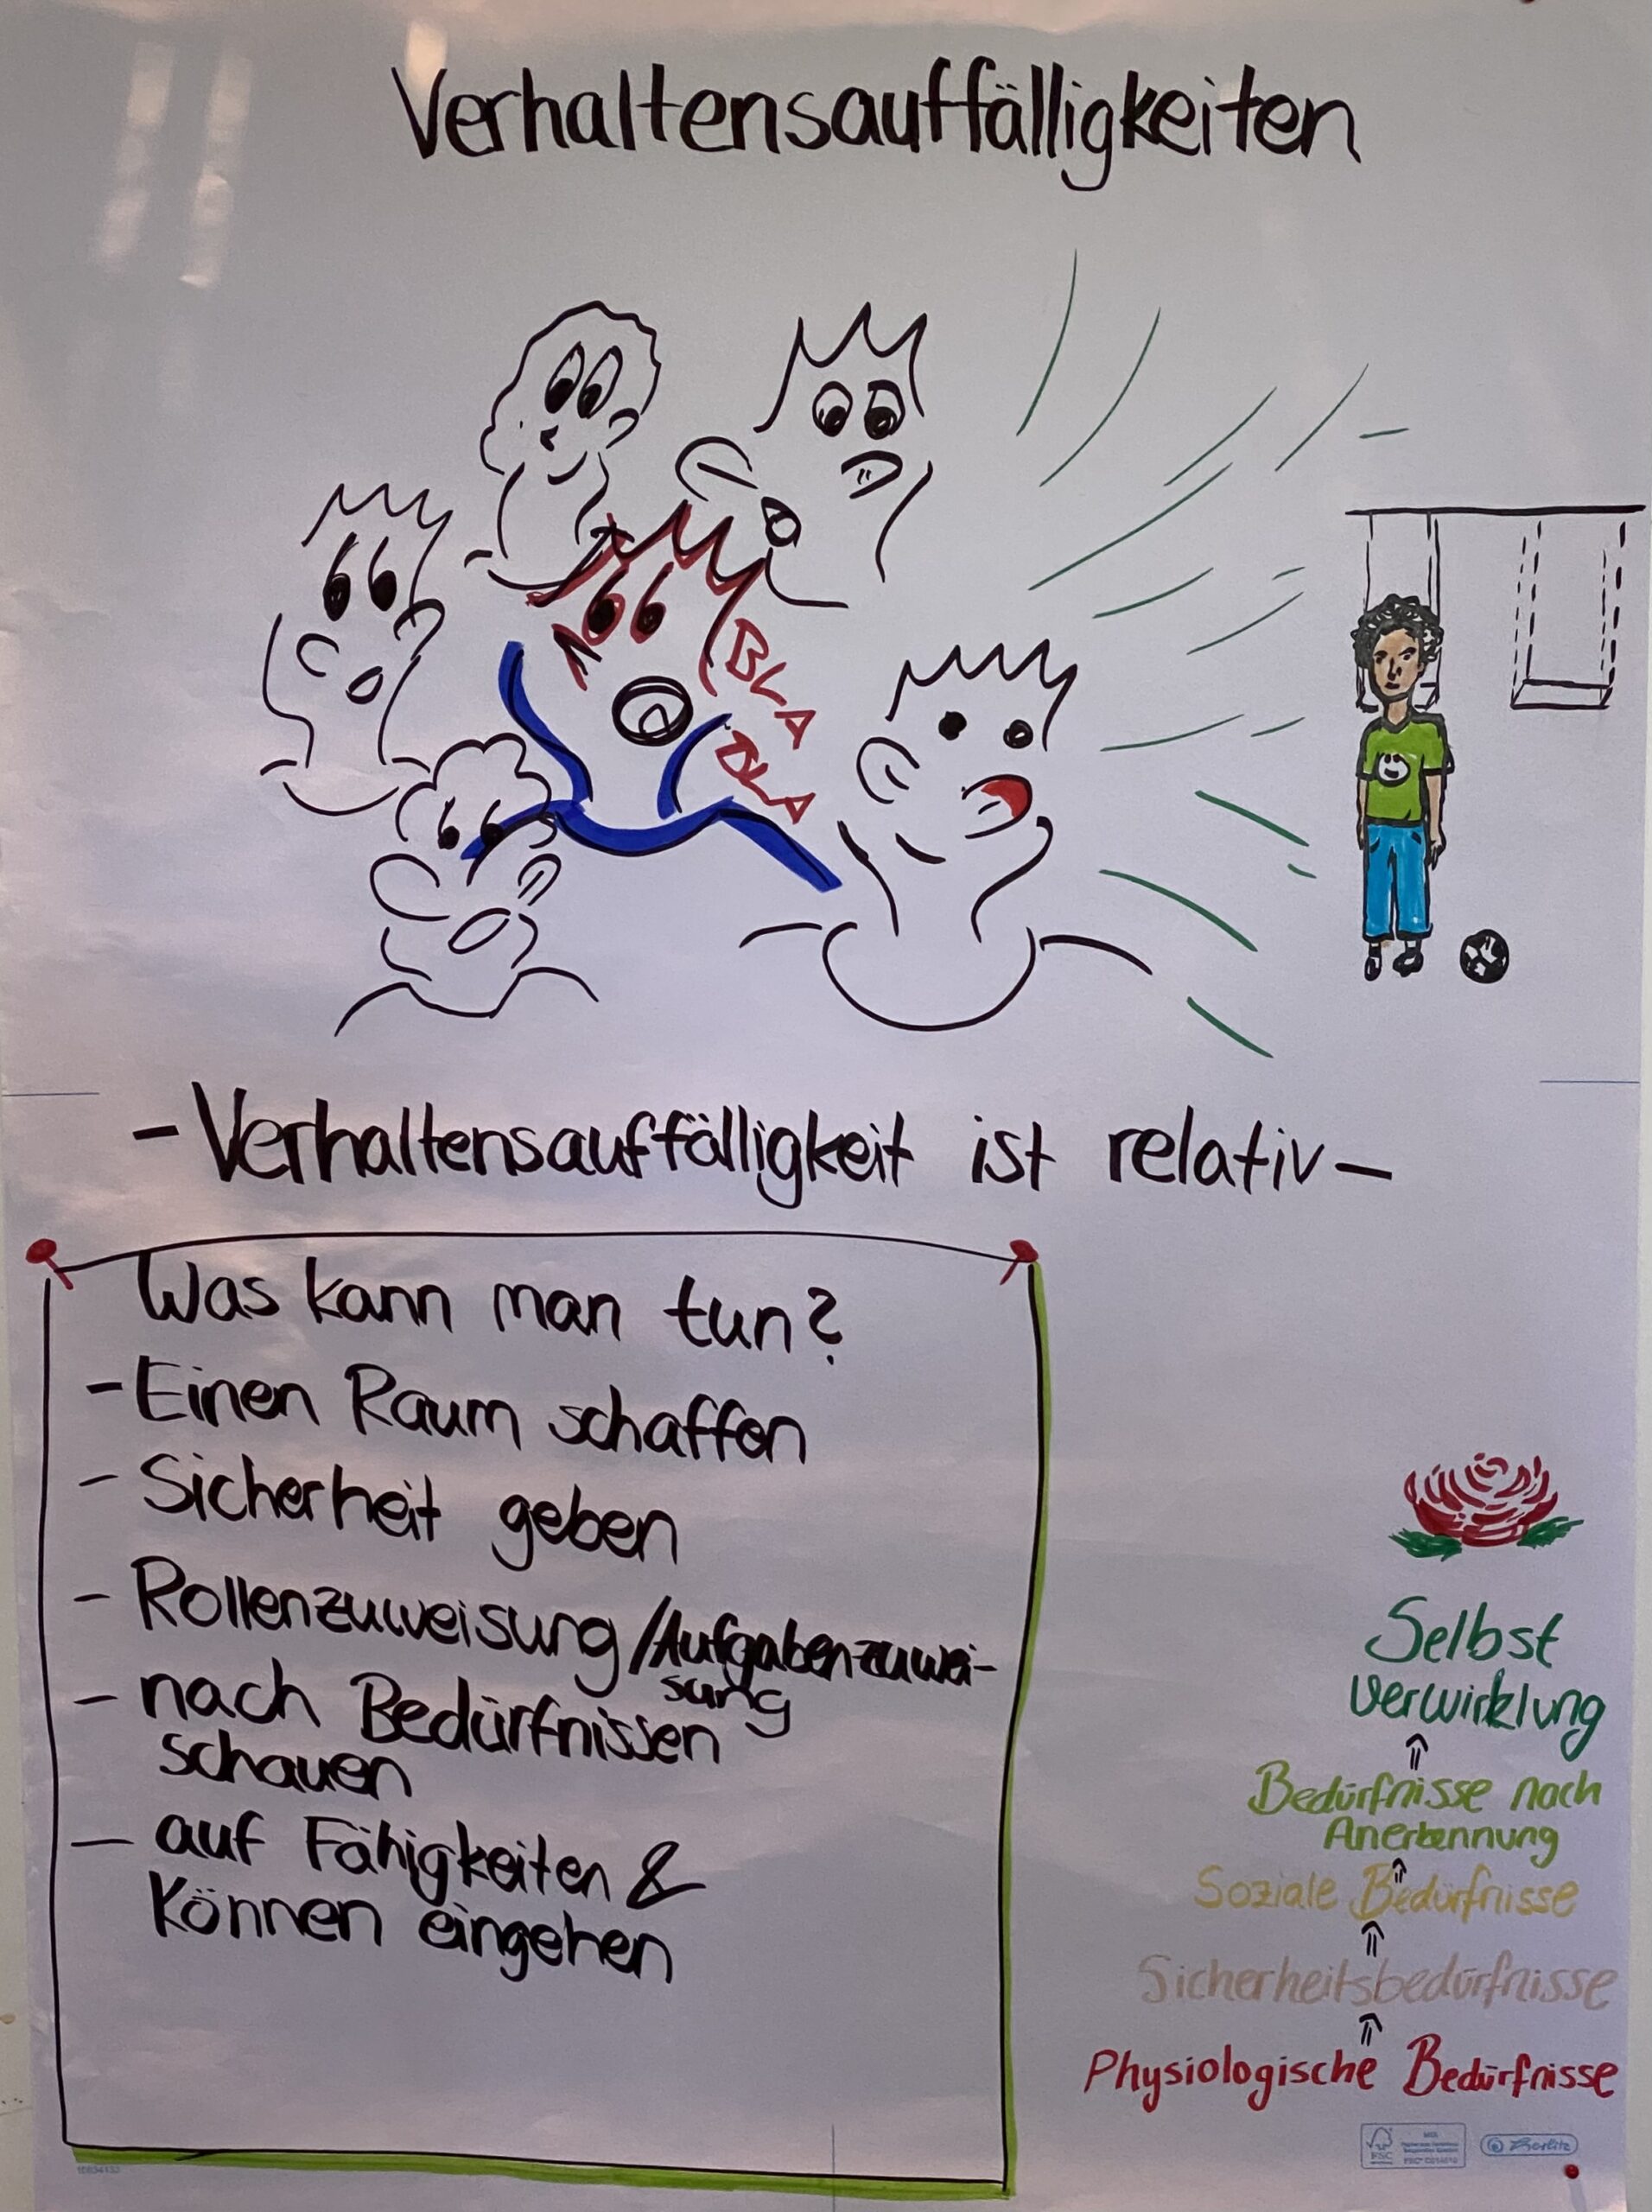 Verhaltensauffälligkeiten
BLA
BLA
- Verhaltensauffälligkeit ist relativ -
Was kann man tun?
- Einen Raum schaffen
- Sicherheit geben
- Rollenzuweisung / Aufgabenzuwei-
sung
- nach Bedürfnissen
schauen
- auf Fähigkeiten &
Können eingehen
Selbst
verwirklung
Bedürfnisse nach
Anerkennung
Soziale Bedürfnisse
Sicherheitsbedürfnisse
Physiologische Bedürfnisse
FSC
Herlitz